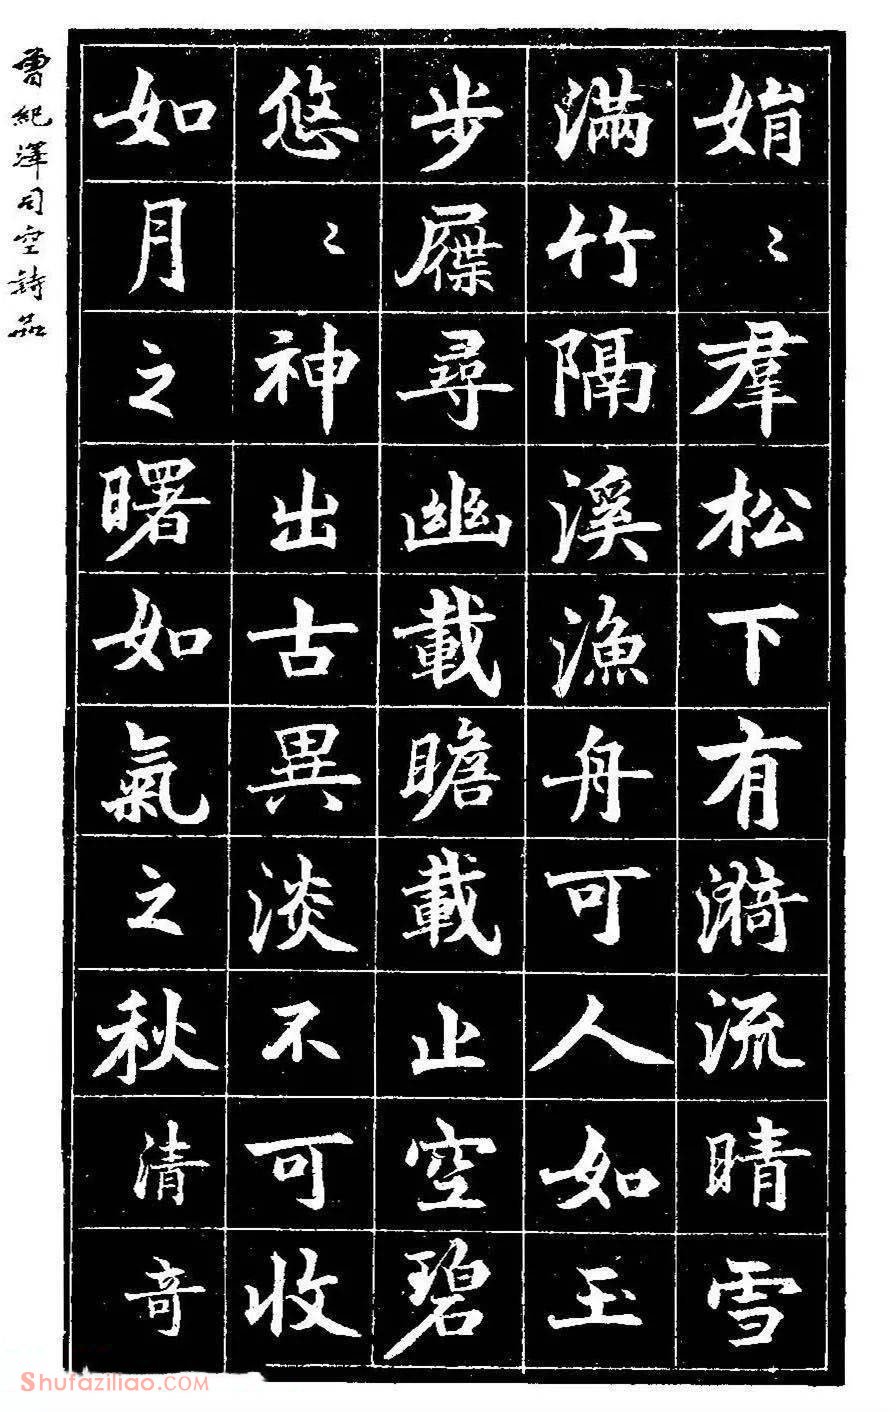 娟〻羣松下有漪流晴雪
滿竹隔溪漁舟可人如玉
步屧尋幽載瞻載止空碧
悠〻神出古異淡不可收
如月之曙如氣之秋清奇
曾紀澤司空詩品
Shufaziliao.COM